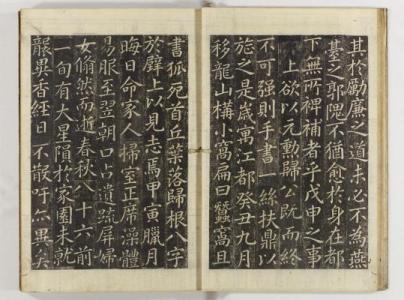 其於勵廉之道未必不為燕
臺之郭隗不猶愈於身在都
下無所裨補者乎戊申之事
上欲以元勳歸公既而終
不可强則手書一絲扶鼎以
㫌之是歲寓江都癸丑九月
移龍山構小窩扁曰蠶窩且
書狐死首丘葉落歸根八字
於壁上以見志焉甲寅臘月
晦日命家人掃室正席澡體
易服至翌朝口占遺疏屛婦
女翛然而逝春秋八十六前
一旬有大星隕於家園未就
龍異香經日不散吁亦異矣